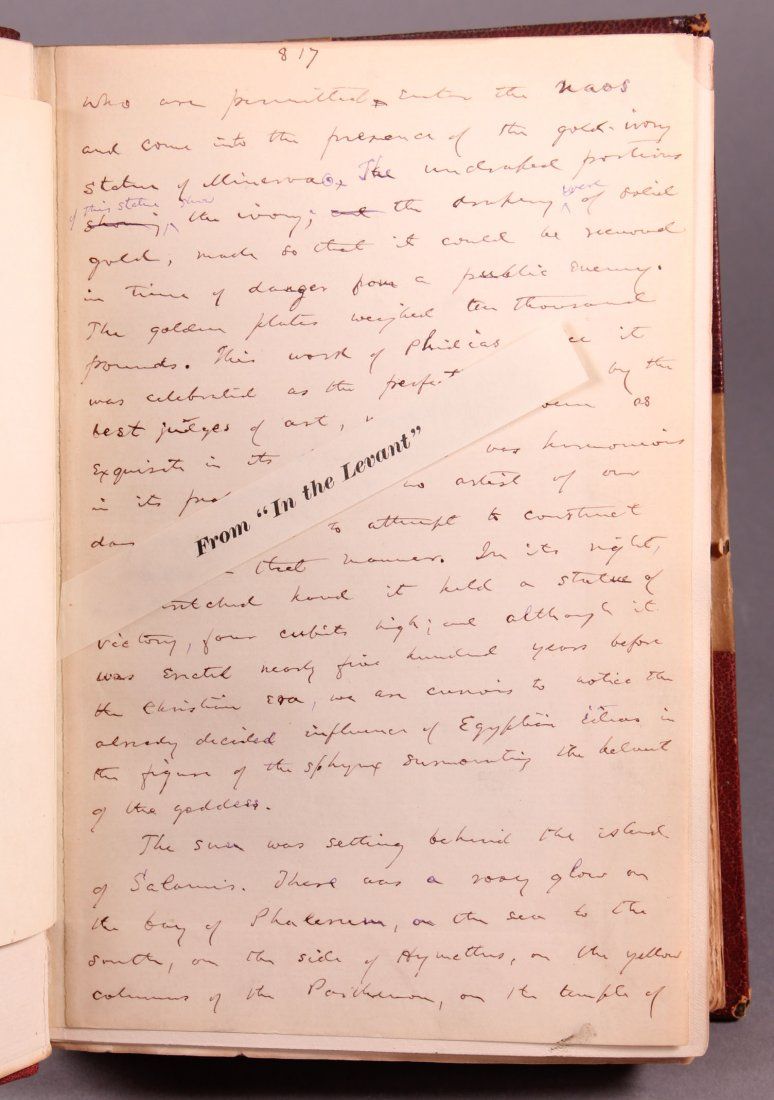 817
who are permitted to enter the naos
and come into the presence of the gold-ivory
statue of Minerva. The undraped portions
of this statue show
showing the ivory; and the drapery were of solid
gold, made so that it could be removed
in time of danger from a public enemy.
The golden plates weighed ten thousand
pounds. This work of Phidias it
was celebrated as the perfect by the
best judges of art, as
exquisite in its was harmonious
in its artist of our
to attempt to construct
that manner. In its right,
hand it held a statue of
victory, four cubits high; and although it
was erected nearly five hundred years before
the Christian era, we are curious to notice the
already decided influence of Egyptian ideas in
the figure of the sphynx surmounting the helmet
of the goddess.
The sun was setting behind the island
of Salamis. There was a rosy glow on
the bay of Phalerum, on the sea to the
south, on the side of Hymettus, on the yellow
columns of the Parthenon, on the temple of
From "In the Levant"